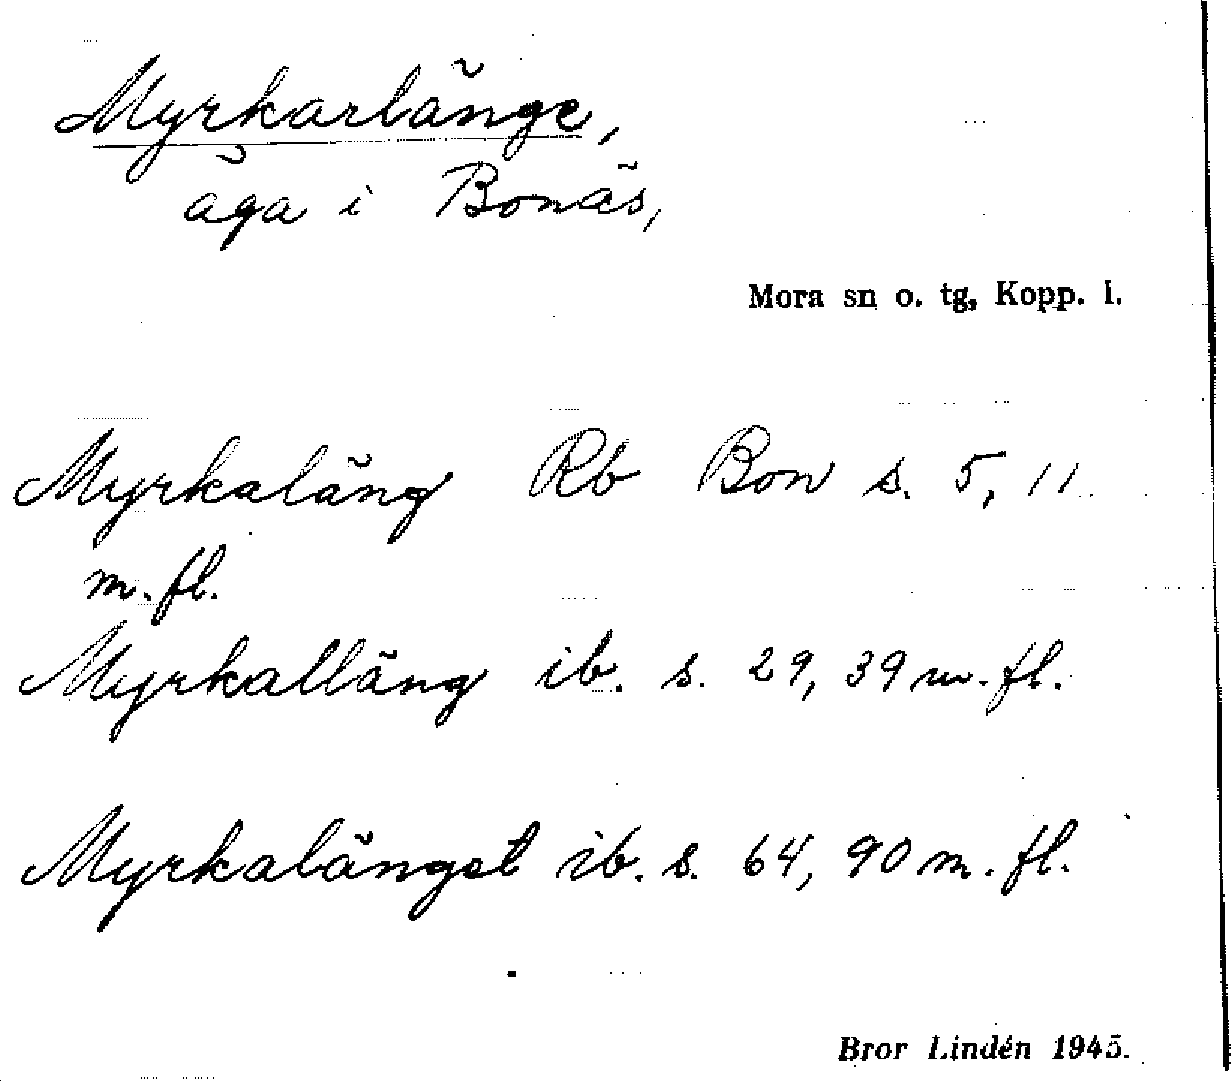 Myrkarlänge,
äga i Bonäs,
Mora sn o. tg, Kopp. l.
Myrkaläng Rb Bon s. 5, 11
m. fl.
Myrkalläng ib. s. 29, 39 m. fl.
Myrkalänget ib. s. 64, 90 m. fl.
Bror Lindén 1945.